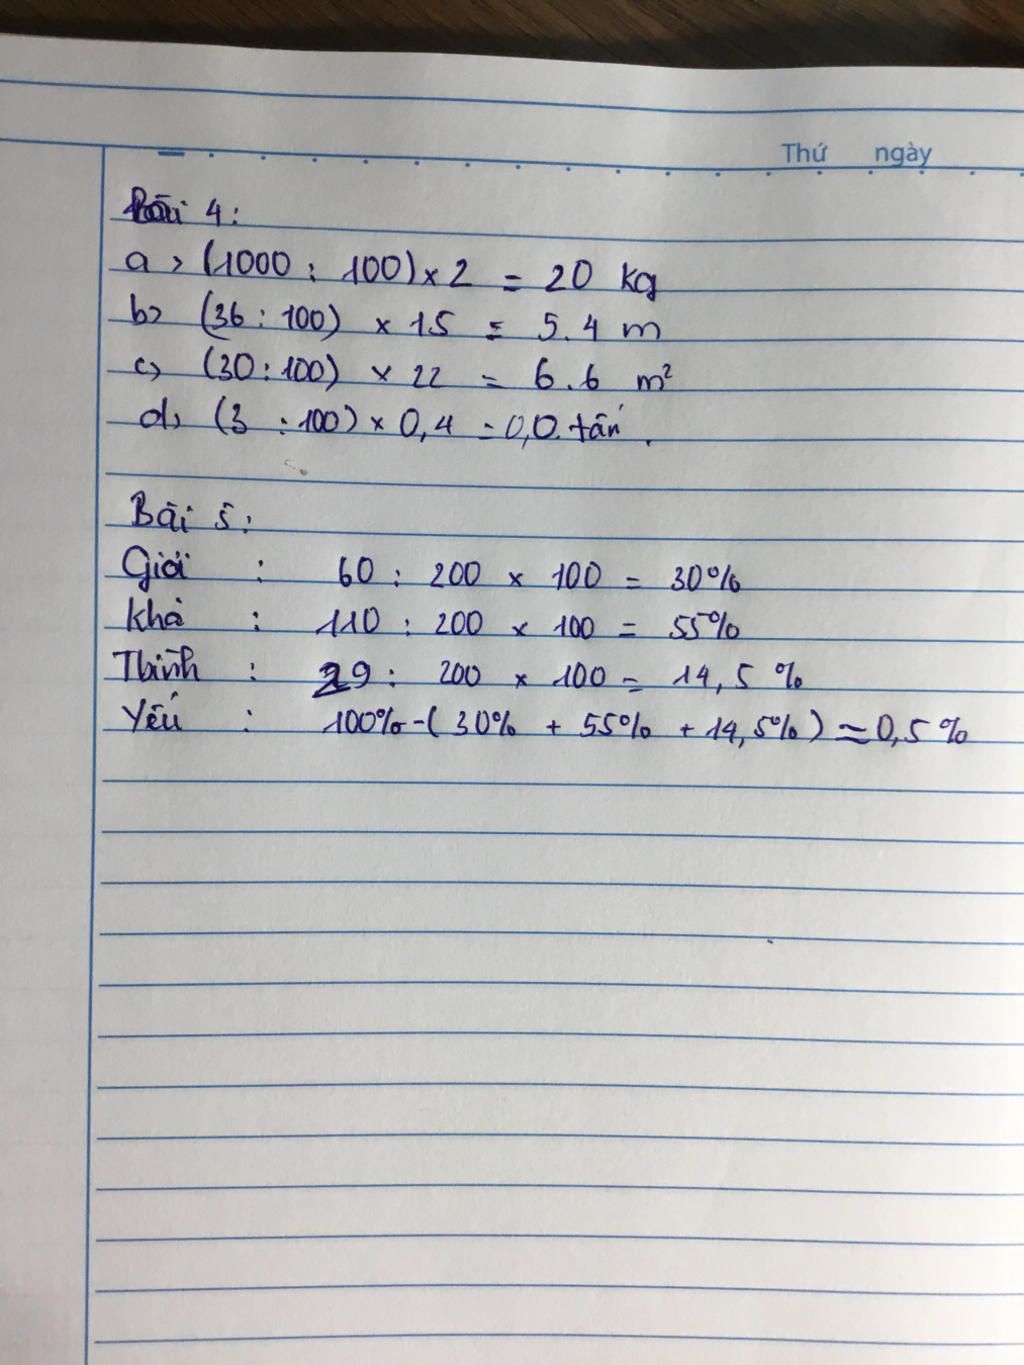 Thứ ngày
Bài 4:
a> (1000 : 100) x 2 = 20 kg
b> (36 : 100) x 15 = 5.4 m
c> (30 : 100) x 22 = 6.6 m²
d> (3 : 100) x 0,4 = 0,0. tấn.
Bài 5:
Giỏi : 60 : 200 x 100 = 30%
Khá : 110 : 200 x 100 = 55%
Tbình : 29 : 200 x 100 = 14,5 %
Yếu : 100% - (30% + 55% + 14,5%) = 0,5 %